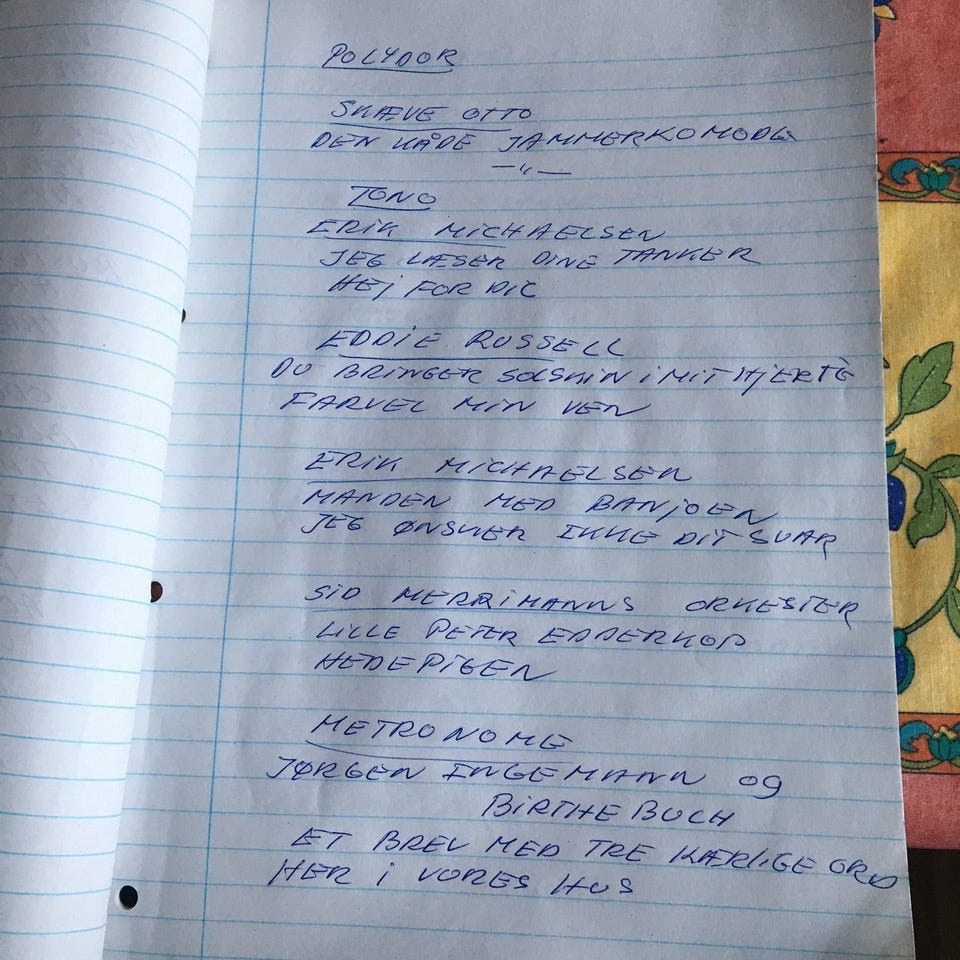 POLYDOR
SKÆVE OTTO
DEN KÅDE JAMMERKOMODE
—"—
TONO
ERIK MICHAELSEN
JEG LÆSER DINE TANKER
HEJ FOR DIG
EDDIE RUSSELL
DU BRINGER SOLSKIN I MIT HJERTE
FARVEL MIN VEN
ERIK MICHAELSEN
MANDEN MED BANJOEN
JEG ØNSKER IKKE DIT SVAR
SID MERRIMANNS ORKESTER
LILLE PETER EDDERKOP
HEDEPIGEN
METRONOME
JØRGEN INGEMANN og
BIRTHE BUCH
ET BREV MED TRE KÆRLIGE ORD
HER I VORES HUS